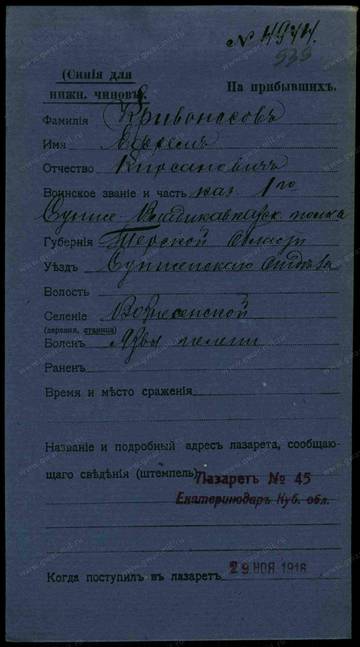 № 4974.
535
(Синія для
нижн. чиновъ).
На прибывшихъ.
Фамилія Кривоносовъ
Имя Ефремъ
Отчество Кирсановичъ
Воинское званіе и часть каз. 1го
Сунже-Владикавказск. полка
Губернія Терской области
Уѣздъ Сунженскаго отдѣла
Волость
Селеніе Вознесенской
(деревня, станица)
Боленъ Язвы голени
Раненъ
Время и мѣсто сраженія
Названіе и подробный адресъ лазарета, сообщаю-
щаго свѣдѣнія (штемпель)
Лазаретъ № 45
Екатеринодаръ Куб. обл.
Когда поступилъ въ лазаретъ 29 НОЯ 1916